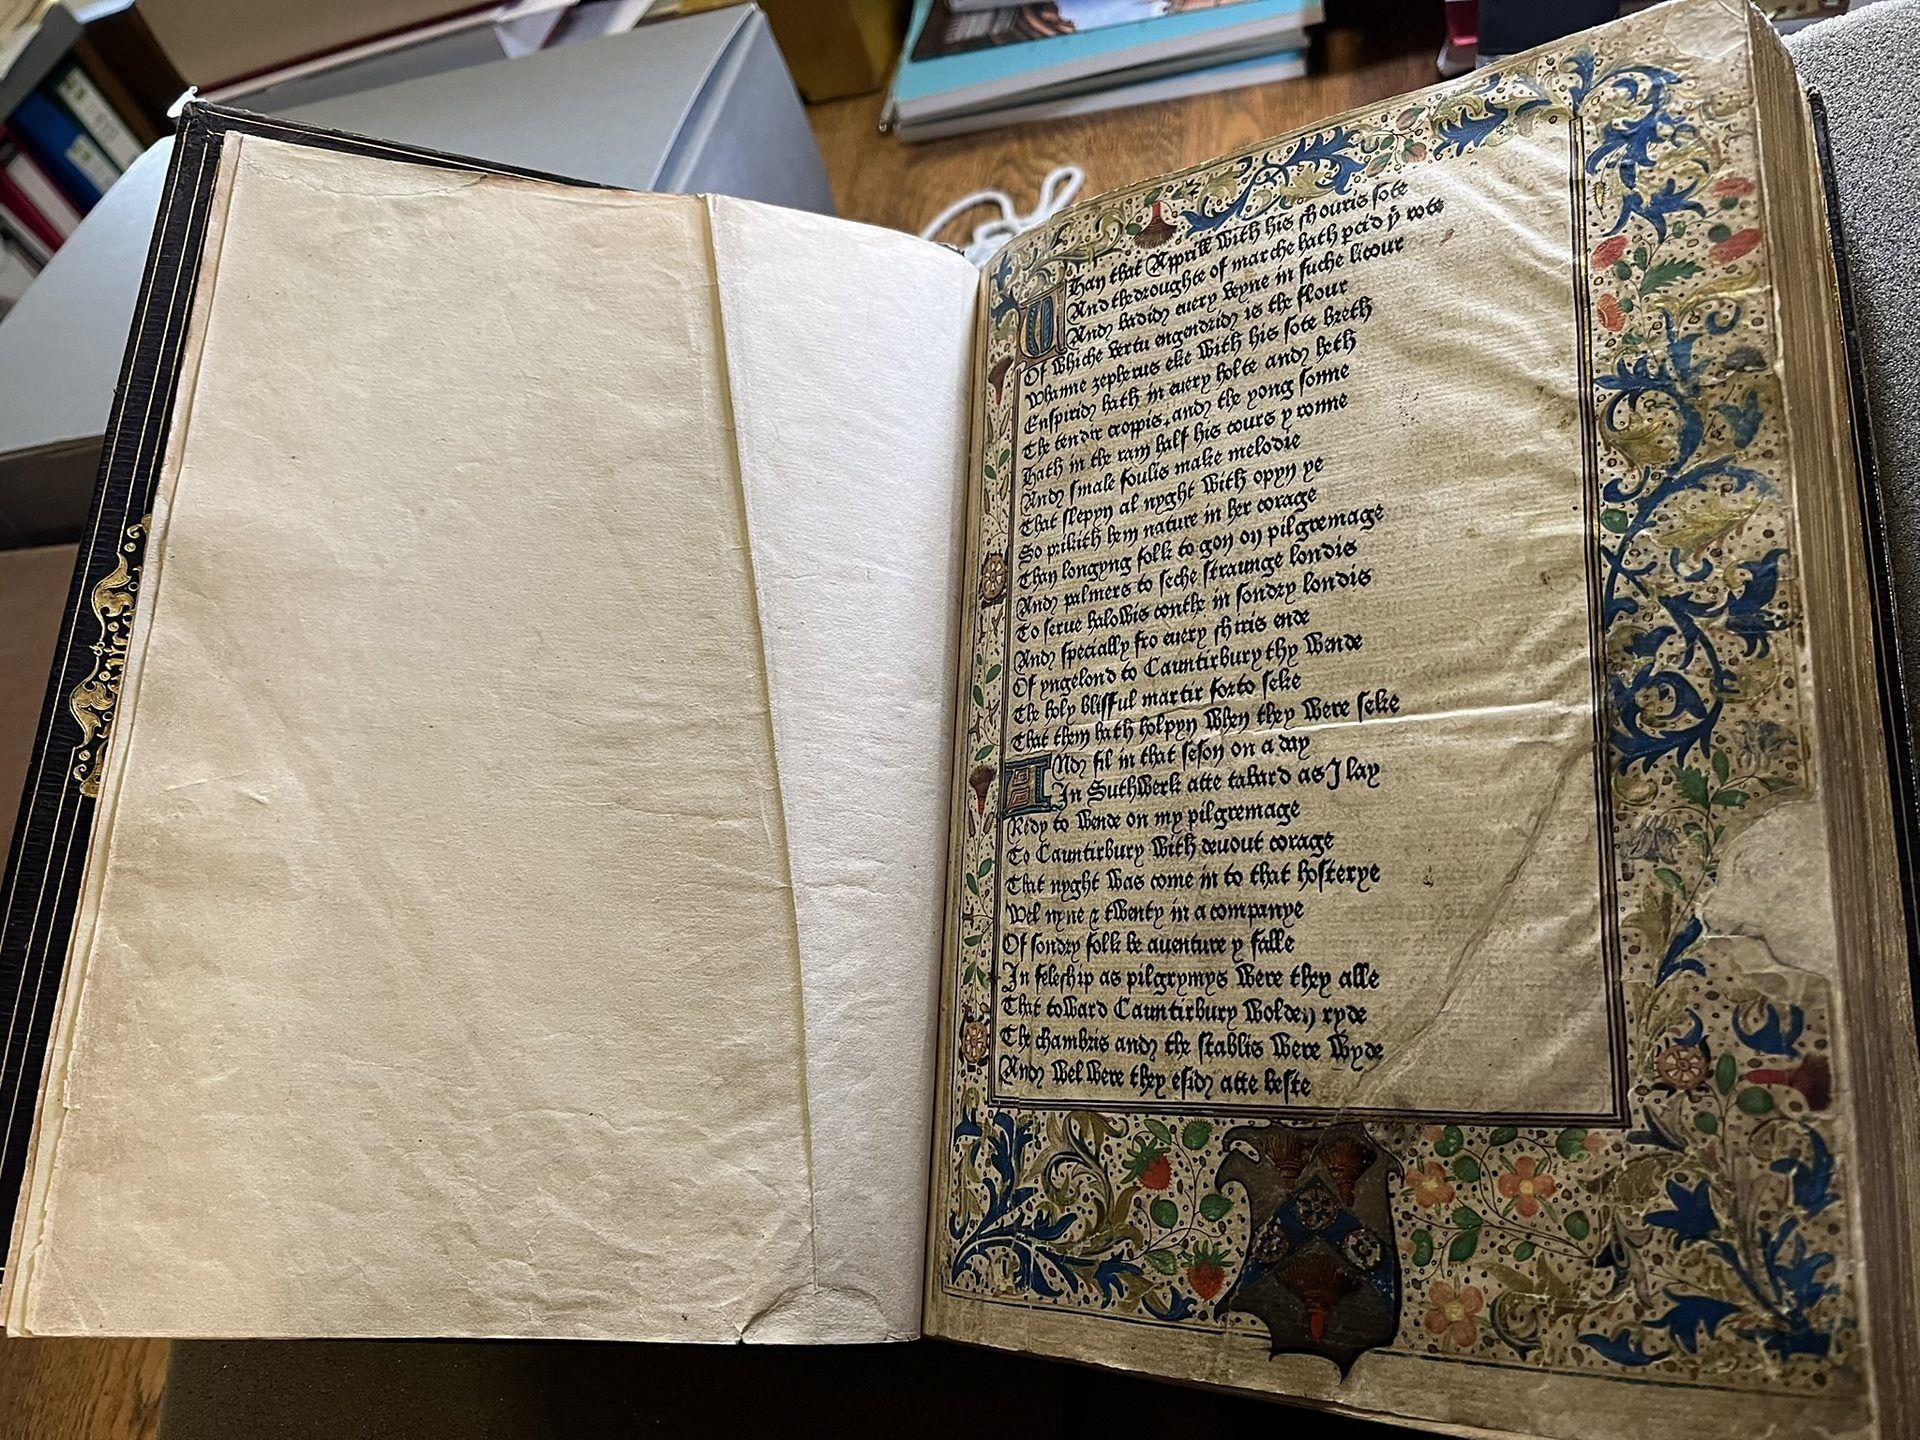 Whan that Apprill with his shouris sote
And the droughte of marche hath percid þe rote
And badid euery veyne in suche licour
Of whiche vertu engendrid is the flour
Whanne zepherus eke with his sote breth
Enspirid hath in euery holte and heth
The tendir croppis, and the yong sonne
Hath in the ram half his cours y ronne
And smale foulis make melodie
That slepyn al nyght with opyn ye
So prikith hem nature in her corage
Than longyng folk to gon on pilgremage
And palmers to seche straunge londis
To serue halowis couthe in sondry londis
And specially fro euery shiris ende
Of yngelond to Cauntirbury thy wende
The holy blisful martir forto seke
That them hath holpyn when they were seke
And fil in that seson on a day
In Suthwerk atte tabard as I lay
Redy to wende on my pilgremage
To Cauntirbury with deuout corage
That nyght was come in to that hosterye
Wel nyne & twenty in a companye
Of sondry folk be auenture y falle
In feleship as pilgrymys were they alle
That toward Cauntirbury wolden ryde
The chambris and the stablis were wyde
And wel were they esid atte beste